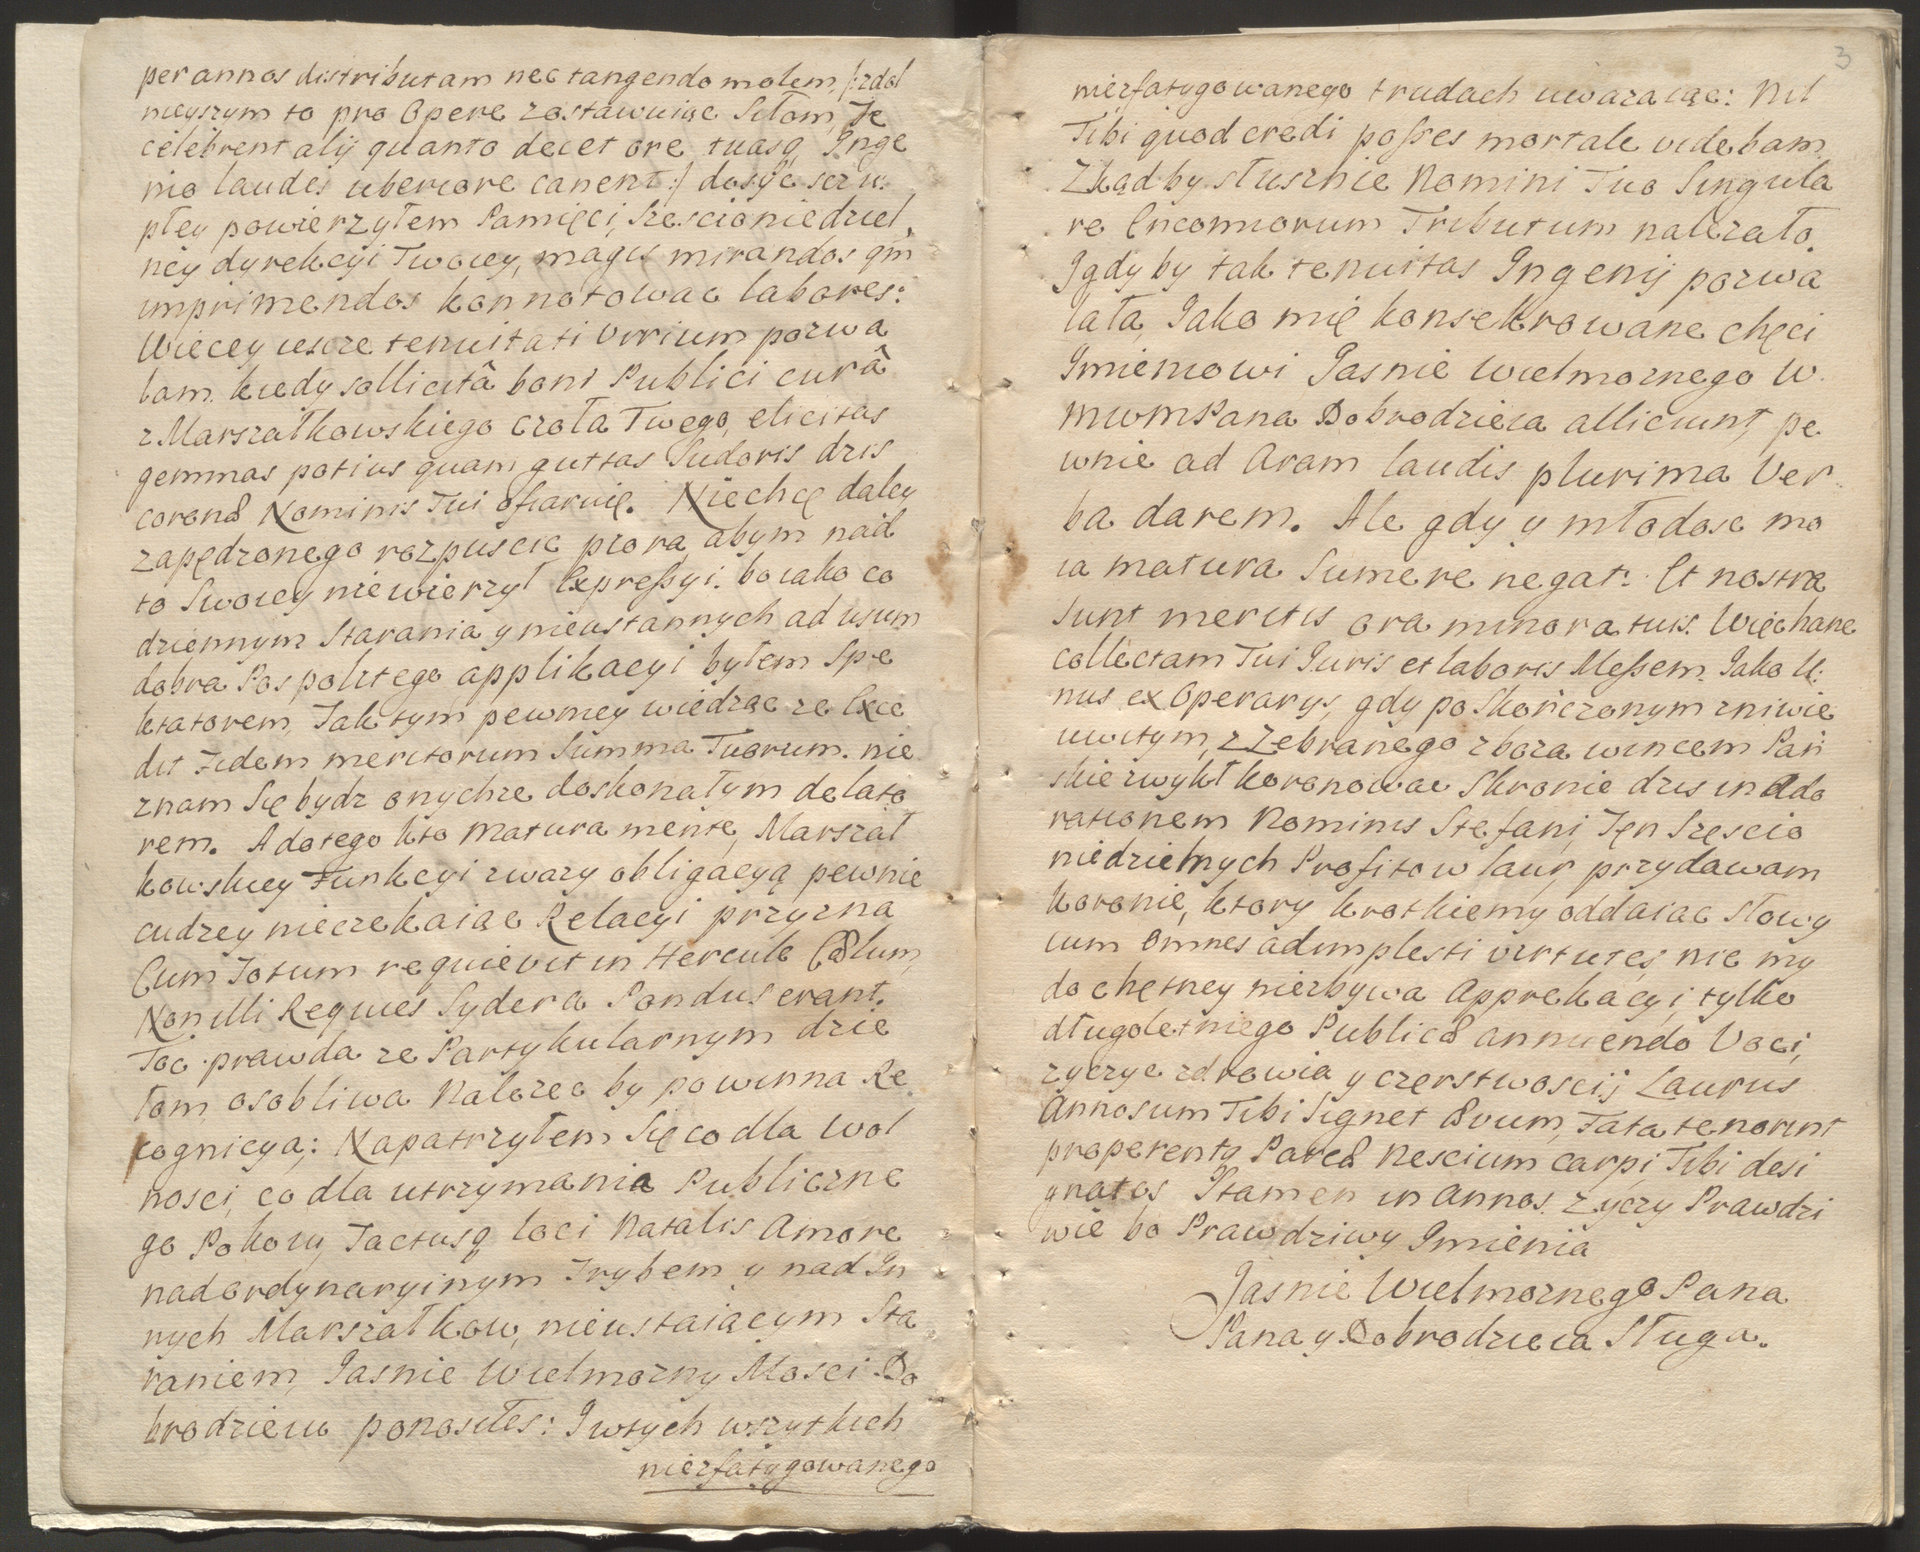 per annos distributam nec tangendo molem, /: zdol
nieyszym to pro Opere zostawuiąc Siłom, Te
celebrent alij quanto decet ore tuasq Inge
nio laudes uberiore canent :/ dosyć szczu
płey powierzyłem Pamięci, Szescioniedziel
ney dyrekcyi Twoiey, magis mirandos qm
imprimendos konnotowac labores:
Wiecey ieszcze tenuitati Virium pozwa
lam. kiedy sollicitâ boni Publici curâ
z Marszałkowskiego czoła Twego, elicitas
gemmas potius quam guttas Sudoris dzis
coronæ Nominis Tui ofiaruię. Niechcę daley
zapędzonego rozpuscic piora, abym nad
to Swoiey niewierzył Expressyi. bo iako co
dziennym Starania y nieustannych ad usum
dobra Pospolitego applikacyi byłem Spe
ktatorem, Tak tym pewniey wiedząc ze Exce
dit Fidem meritorum Summa Tuorum. nie
znam Się bydz onychze doskonałym delato
rem. A dotego kto matura mente, Marszał
kowskiey Funkcyi zwazy obligacyą pewnie
cudzey nieczekaiąc Relacyi przyzna
Cum Totum requievit in Hercule Cælum,
Non illi Requies Sydera Pondus erant.
Toc prawda ze Partykularnym dzie
łom osobliwa Nalezec by powinna Re
cognicya; Napatrzyłem Się co dla Wol
nosci, co dla utrzymania Publiczne
go Pokoiu, Tactusq loci Natalis Amore
nadordynaryinym Trybem y nad In
nych Marszałkow, nieustaiącym Sta
raniem, Jasnie Wielmozny Mosci Do
brodzieiu ponosiłes: I wtych wszytkich
niezfatygowanego
3
niezfatygowanego trudach uwazaiąc: Nil
Tibi quod credi posses mortale videbam
Zkąd by słusznie Nomini Tuo Singula
re Encomiorum Tributum nalezało.
I gdyby tak tenuitas Ingenij pozwa
lała, Jako mię konsekrowane chęci
Imieniowi Jasnie Wielmoznego W.
MWMPana Dobrodzieia alliciunt, pe
wnie ad Aram laudis plurima Ver
ba darem. Ale gdy y młodosc mo
ia matura Sumere negat: Et nostra
Sunt meritis ora minora tuis. Więc hanc
collectam Tui Juris et laboris Messem. Jako U
nus ex Operarys, gdy po Skończonym zniwie
uwitym, z Zebranego zboza wincem Pań
skie zwykł koronowac Skronie dzis in Ado
rationem Nominis Stefani, Ten Szęscio
niedzielnych Profitow laur, przydawam
koronie, ktory krotkiemy oddaiąc Słowy
ium Omnes adimplesti virtutes, nic my
do chętney niezbywa Apprekacyi, tylko
długoletniego Publicæ annuendo Voci,
zyczyc zdrowia y czerstwoscij Laurus
Annosum Tibi Signet Ævum, Fata tenorint
properentq Parcæ Nescium carpi, Tibi desi
gnatos Stamen in Annos. Zyczy Prawdzi
wie bo Prawdziwy Imienia
Jasnie Wielmoznego Pana
Pana y Dobrodzieia Sługa.